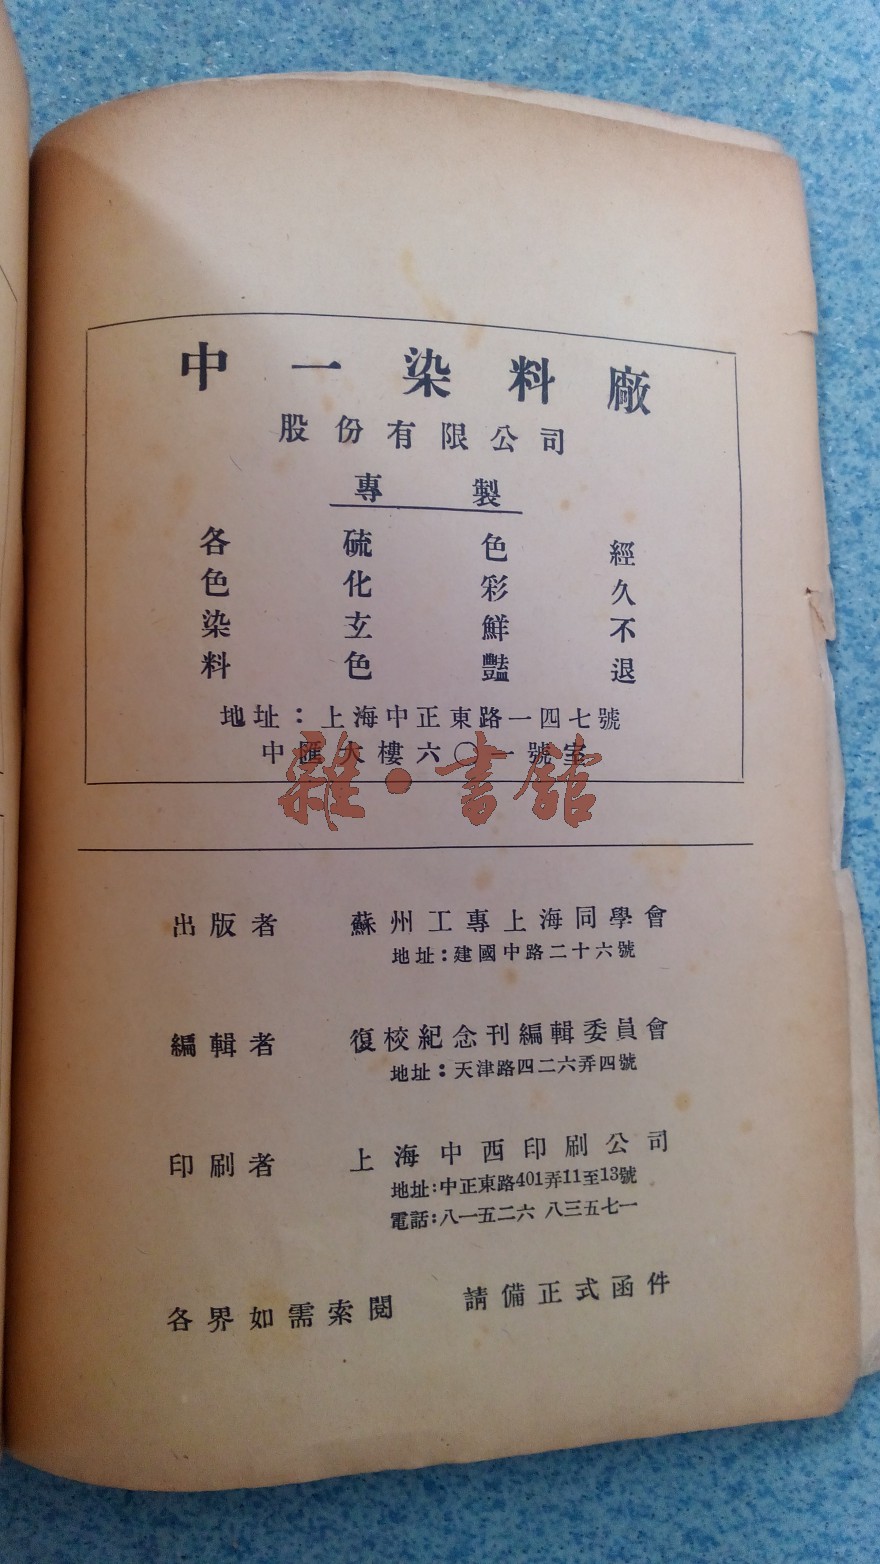 中一染料廠
股份有限公司
專製
各色染料
硫化玄色
色彩鮮豔
經久不退
地址：上海中正東路一四七號
中匯大樓六〇一號室
雜·書館
出版者 蘇州工專上海同學會
地址：建國中路二十六號
編輯者 復校紀念刊編輯委員會
地址：天津路四二六弄四號
印刷者 上海中西印刷公司
地址：中正東路401弄11至13號
電話：八一五二六 八三五七一
各界如需索閱 請備正式函件